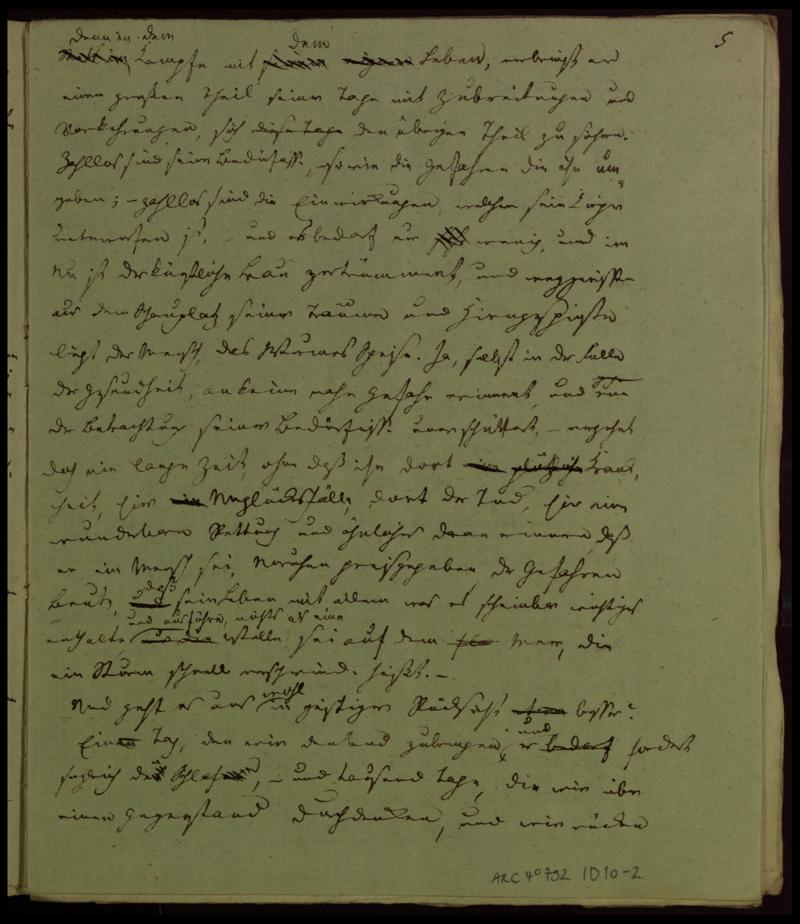 5
denn in dem
Kampfe mit dem Leben, verbringt er
einen großen Theil seiner Tage mit Zubereitungen und
Vorkehrungen, sich diese Tage den übrigen Theil zu
Zahllos sind seine Bedürfnisse, sowie die Gefahren die ihn um
geben; – zahllos sind die Einwirkungen, welchen sein Körper
unterworfen ist, – und es bedarf nur wenig, und im
Nu ist der künstliche Bau zertrümmert, und weggerissen
aus dem Schauplatz seiner Träume und Hirngespinste
liegt der Mensch, des Wurmes Speise. Ja, selbst in der Fülle
der Gesundheit, an keine nahe Gefahr erinnert, und von
der Betrachtung seiner Bedürfnisse unerschüttert, – vergehet
doch eine lange Zeit, ohne daß ihn dort plötzliche Krank,
heit, hier Unglücksfälle, dort der Tod, hier eine
wunderbare Rettung und ähnliches daran erinnere, daß
er ein Mensch sei, preisgegeben, der Gefahren
Beute, daß sein Leben mit allem was es scheinbar wichtiges
und ausführe, nichts als eine
enthalte Welle sei auf dem Meer, die
ein Sturm schnell verschwinden heißt. –
Und geht es uns wohl in geistiger Rücksicht besser?
Ein Tag, den wir denkend zubringen, und er fordert
sogleich den Schlaf, – und tausend Tage, die wir über
einen Gegenstand durchdenken, und wir rücken
ARC 4° 792 1D10-2